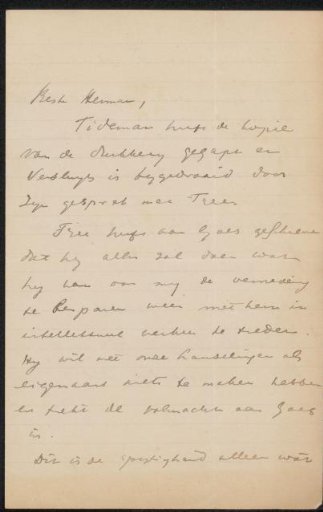 Beste Herman,
Tideman heeft de kopie
van de drukkery gegapt en
Versluys is bygedraaid door
zyn gesprek met Treu
Treu heeft aan Goes geschreven
dat hy alles zal doen wat
hy kan om my de vernedering
te besparen weer met hem in
intellectueel verkeer te treden.
Hy wil met onze handelingen als
eigenaars niets te maken hebben
en trekt de volmacht aan Goes
in.
Dit is de alleen